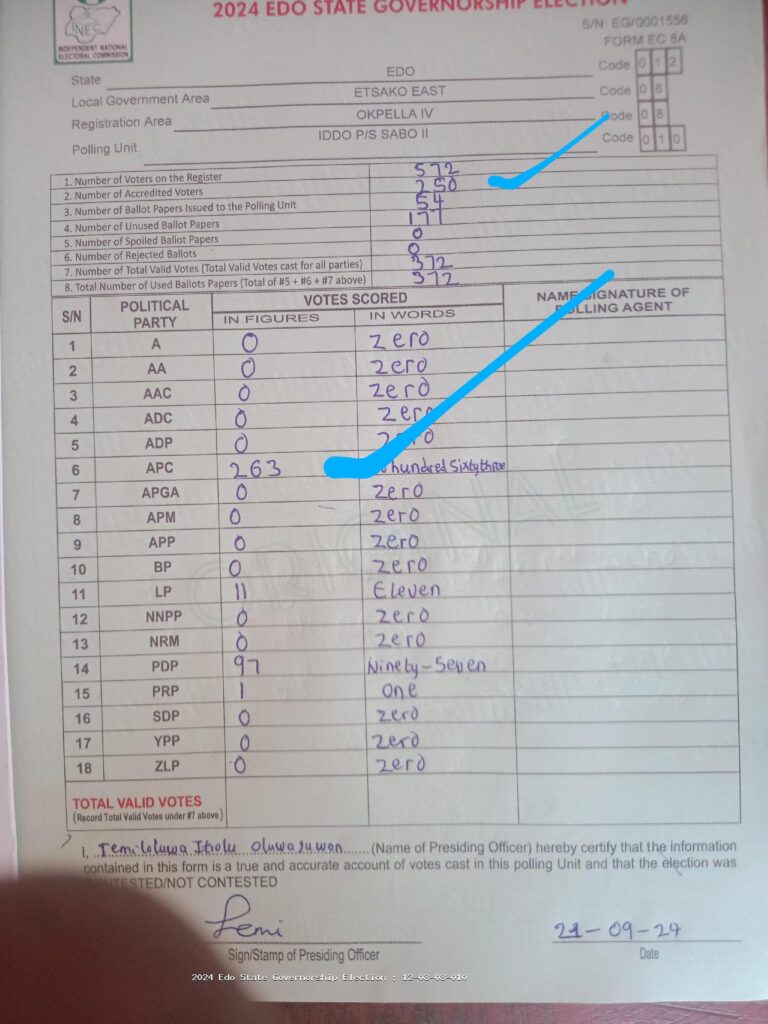 2024 EDO STATE GOVERNORSHIP ELECTION
INEC
INDEPENDENT NATIONAL
ELECTORAL COMMISSION
S/N EG/0001556
FORM EC 8A
State EDO Code 0 1 2
Local Government Area ETSAKO EAST Code 0 8
Registration Area OKPELLA IV Code 0 8
Polling Unit IDDO P/S SABO II Code 0 1 0
1. Number of Voters on the Register 572
2. Number of Accredited Voters 250
3. Number of Ballot Papers Issued to the Polling Unit 54
4. Number of Unused Ballot Papers 177
5. Number of Spoiled Ballot Papers 0
6. Number of Rejected Ballots 0
7. Number of Total Valid Votes (Total Valid Votes cast for all parties) 372
8. Total Number of Used Ballots Papers (Total of #5 + #6 + #7 above) 372
S/N POLITICAL PARTY VOTES SCORED NAME/SIGNATURE OF POLLING AGENT
IN FIGURES IN WORDS
1 A 0 Zero
2 AA 0 Zero
3 AAC 0 Zero
4 ADC 0 Zero
5 ADP 0 Zero
6 APC 263 hundred Sixty three
7 APGA 0 Zero
8 APM 0 Zero
9 APP 0 Zero
10 BP 0 Zero
11 LP 11 Eleven
12 NNPP 0 Zero
13 NRM 0 Zero
14 PDP 97 Ninety-Seven
15 PRP 1 One
16 SDP 0 Zero
17 YPP 0 Zero
18 ZLP 0 Zero
ORIGINAL
TOTAL VALID VOTES
(Record Total Valid Votes under #7 above)
I, Temiloluwa Oluwaluwon (Name of Presiding Officer) hereby certify that the information
contained in this form is a true and accurate account of votes cast in this polling Unit and that the election was
CONTESTED/NOT CONTESTED
Temi 21-09-24
Sign/Stamp of Presiding Officer Date
2024 Edo State Governorship Election : 12-08-08-010